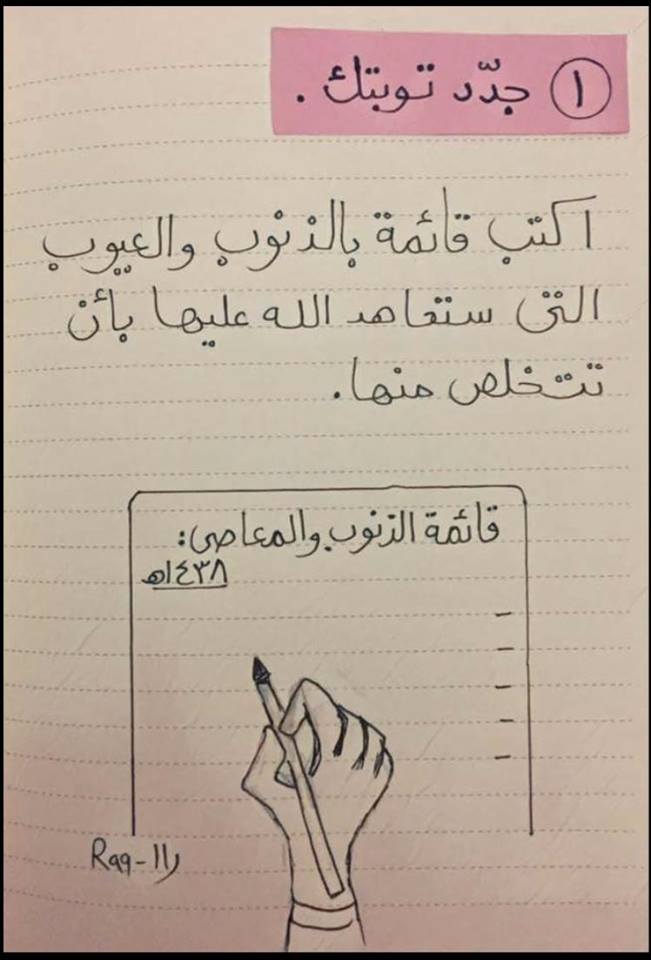 ١ جدّد توبتك .
اكتب قائمة بالذنوب والعيوب
التي ستعاهد الله عليها بأن
تتخلص منها.
قائمة الذنوب والمعاصي:
١٤٣٨هـ
-
-
-
-
-
Raq-11ر